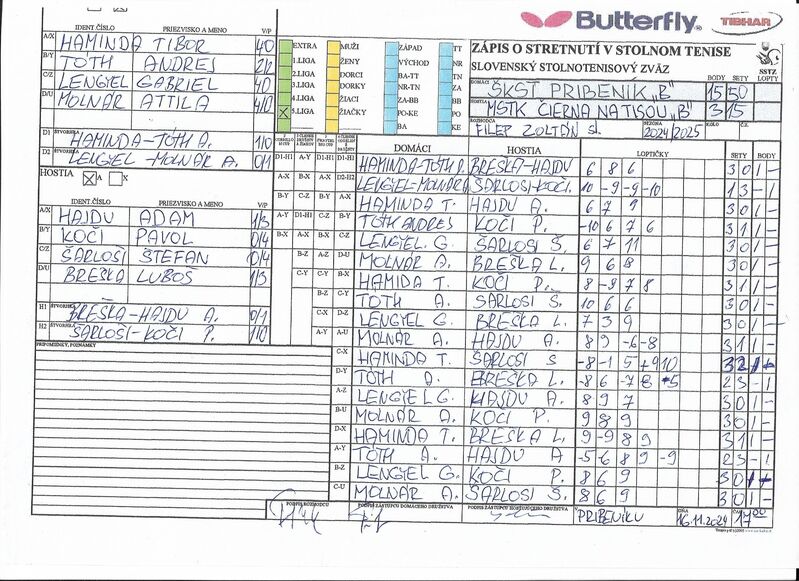 Butterfly
TIBHAR
IDENT. ČÍSLO PRIEZVISKO A MENO V/P
A/X HAMINDA TIBOR 4/0
B/Y TÓTH ANDREJ 2/2
C/Z LENGYEL GABRIEL 4/0
D/U MOLNÁR ATTILA 4/0
D1 ŠTVORHRA HAMINDA-TÓTH A. 1/0
D2 ŠTVORHRA LENGIEL-MOLNÁR A. 0/1
HOSTIA A X
IDENT. ČÍSLO PRIEZVISKO A MENO V/P
A/X HAJDU ADAM 1/3
B/Y KOČI PAVOL 0/4
C/Z ŠARLOSI ŠTEFAN 0/4
D/U BREŠKA LUBOŠ 1/3
H1 ŠTVORHRA BREŠKA-HAJDU A. 0/1
H2 ŠTVORHRA ŠARLOSI-KOČI P. 1/0
PRIPOMIENKY, POZNÁMKY
EXTRA
1.LIGA
2.LIGA
3.LIGA
4.LIGA
5.LIGA
MUŽI
ŽENY
DORCI
DORKY
ŽIACI
ŽIAČKY
ZÁPAD
VÝCHOD
BA-TT
NR-TN
ZA-BB
PO-KE
TT
NR
TN
ZA
BB
PO
KE
ZÁPIS O STRETNUTÍ V STOLNOM TENISE
SLOVENSKÝ STOLNOTENISOVÝ ZVÄZ
SSTZ
BODY SETY LOPTY
DOMÁCI ŠKST PRIBENÍK „B" 15 50
HOSTIA MSTK ČIERNA NA TISOU „B" 3 15
ROZHODCA FILEP ZOLTÁN st. SEZÓNA 2024/2025 KOLO Č.
DOMÁCI HOSTIA LOPTIČKY SETY BODY
HAMINDA-TÓTH A. BREŠKA-HAJDU 6 8 6 3 0 1 -
LENGIEL-MOLNÁR ŠARLOSI-KOČI. 10 -9 -9 -10 1 3 - 1
HAMINDA T. HAJDU A. 6 7 9 3 0 1 -
TÓTH ANDREJ KOČI P. -10 6 7 6 3 1 1 -
LENGYEL G. ŠARLOSI Š. 6 7 11 3 0 1 -
MOLNÁR A. BREŠKA L. 9 6 8 3 0 1 -
HAMIDA T. KOČI P. 8 -9 7 8 3 1 1 -
TÓTH A. ŠARLOSI Š. 10 6 6 3 0 1 -
LENGYEL G BREŠKA L. 7 3 9 3 0 1 -
MOLNÁR A. HAJDU A. 8 9 -6 -8 3 1 1 -
HAMINDA T. ŠARLOSI S -8 -1 5 9 10 3 2 1 -
TÓTH A. BREŠKA L. -8 6 -7 8 -5 2 3 - 1
LENGYEL G. HAJDU A. 8 9 7 3 0 1 -
MOLNÁR A. KOČI P. 9 8 9 3 0 1 -
HAMINDA T. BREŠKA L. 9 -9 8 9 3 1 1 -
TÓTH A. HAJDU A -5 6 8 9 -9 2 3 - 1
LENGYEL G. KOČI P. 8 6 9 3 0 1 -
MOLNÁR A. ŠARLOSI Š. 8 6 9 3 0 1 -
PODPIS ROZHODCU PODPIS ZÁSTUPCU DOMÁCEHO DRUŽSTVA PODPIS ZÁSTUPCU HOSŤUJÚCEHO DRUŽSTVA V PRIBENÍKU DŇA 16.11.2024 ČAS 17 00